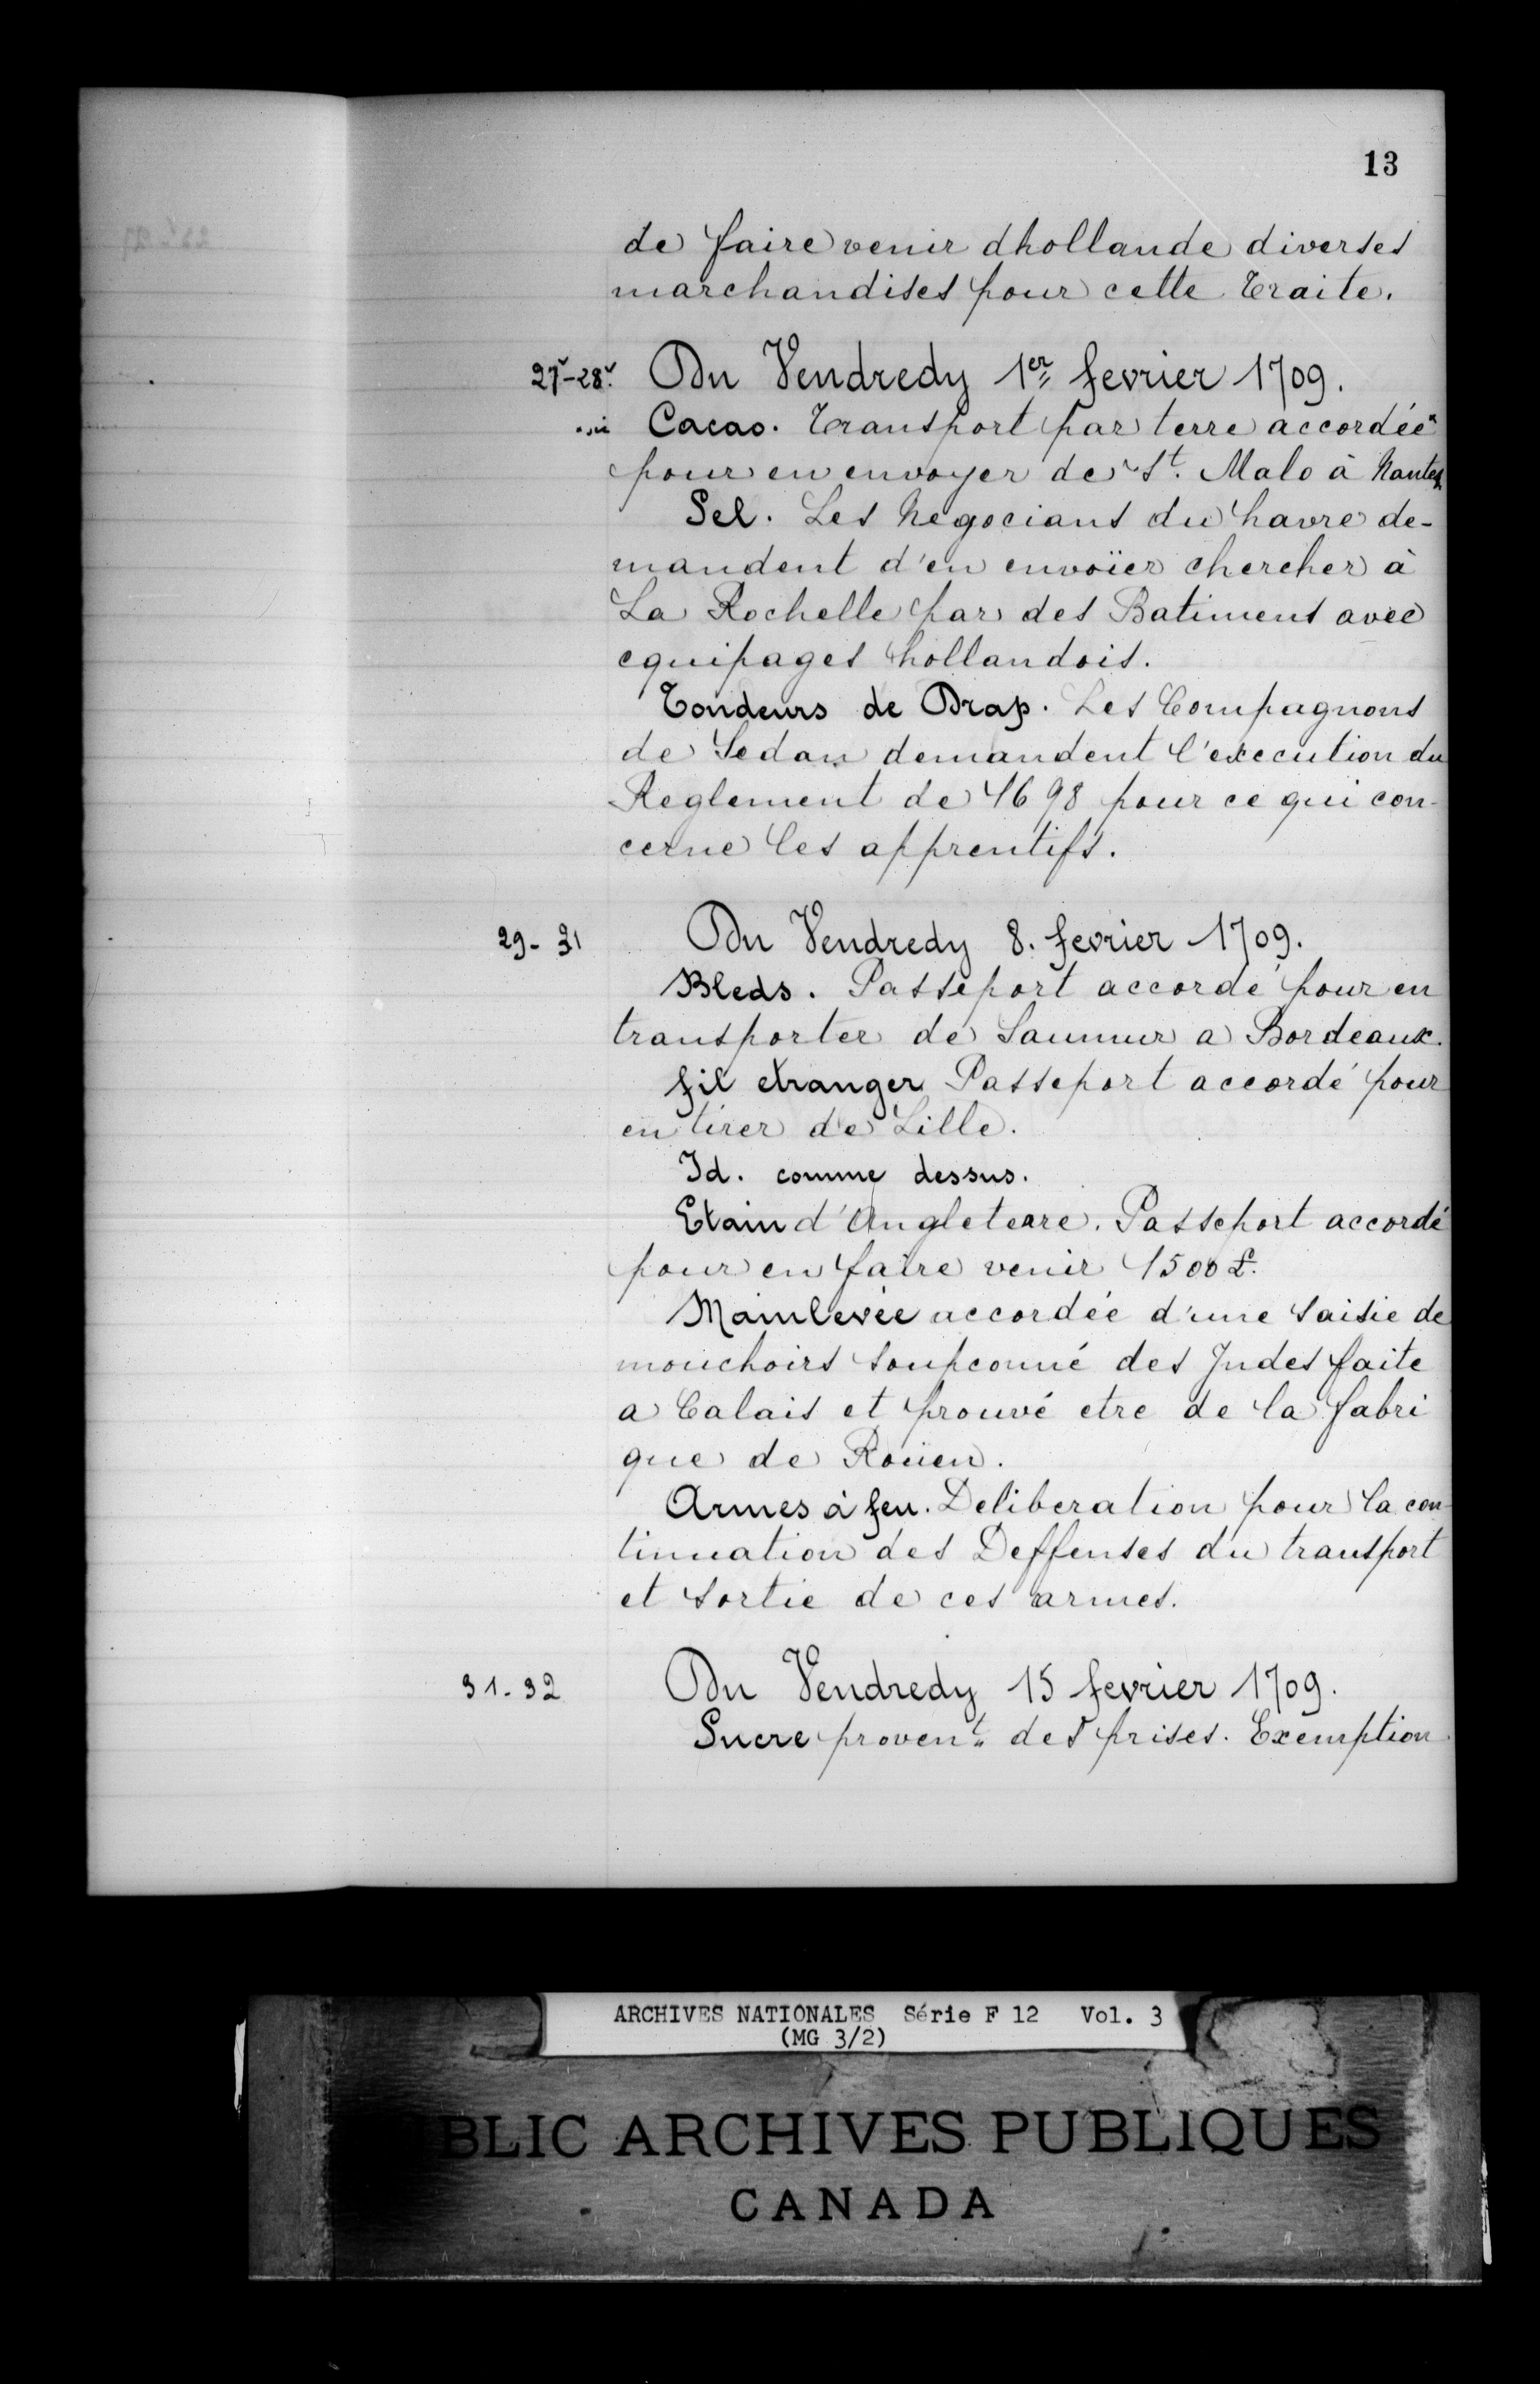 13
de faire venir dhollande diverses
marchandises pour cette Traite.
27v-28v. Du Vendredy 1er fevrier 1709.
Cacao. Transport par terre accordée
pour en envoyer de St. Malo à Nantes
Sel. Les Negocians du havre de-
mandent d'en envoïer chercher à
La Rochelle par des Batimens avec
equipages hollandois.
Tondeurs de Drap. Les Compagnons
de Sedan demandent l'execution du
Reglement de 1698 pour ce qui con-
cerne les apprentifs.
29-31 Du Vendredy 8. fevrier 1709.
Bleds. Passeport accordé pour en
transporter de Saumur a Bordeaux.
fil etranger Passeport accordé pour
en tirer de Lille.
Id. comme dessus.
Etain d'Angleterre. Passeport accordé
pour en faire venir 1500 £.
Mainlevée accordée d'une saisie de
mouchoirs soupconné des Indes faite
a Calais et prouvé etre de la fabri
que de Roüen.
Armes à feu. Deliberation pour la con-
tinuation des Deffenses du transport
et sortie de ces armes.
31-32 Du Vendredy 15 fevrier 1709.
Sucre provent. des prises. Exemption
ARCHIVES NATIONALES Série F 12 Vol. 3
(MG 3/2)
BLIC ARCHIVES PUBLIQUES
CANADA